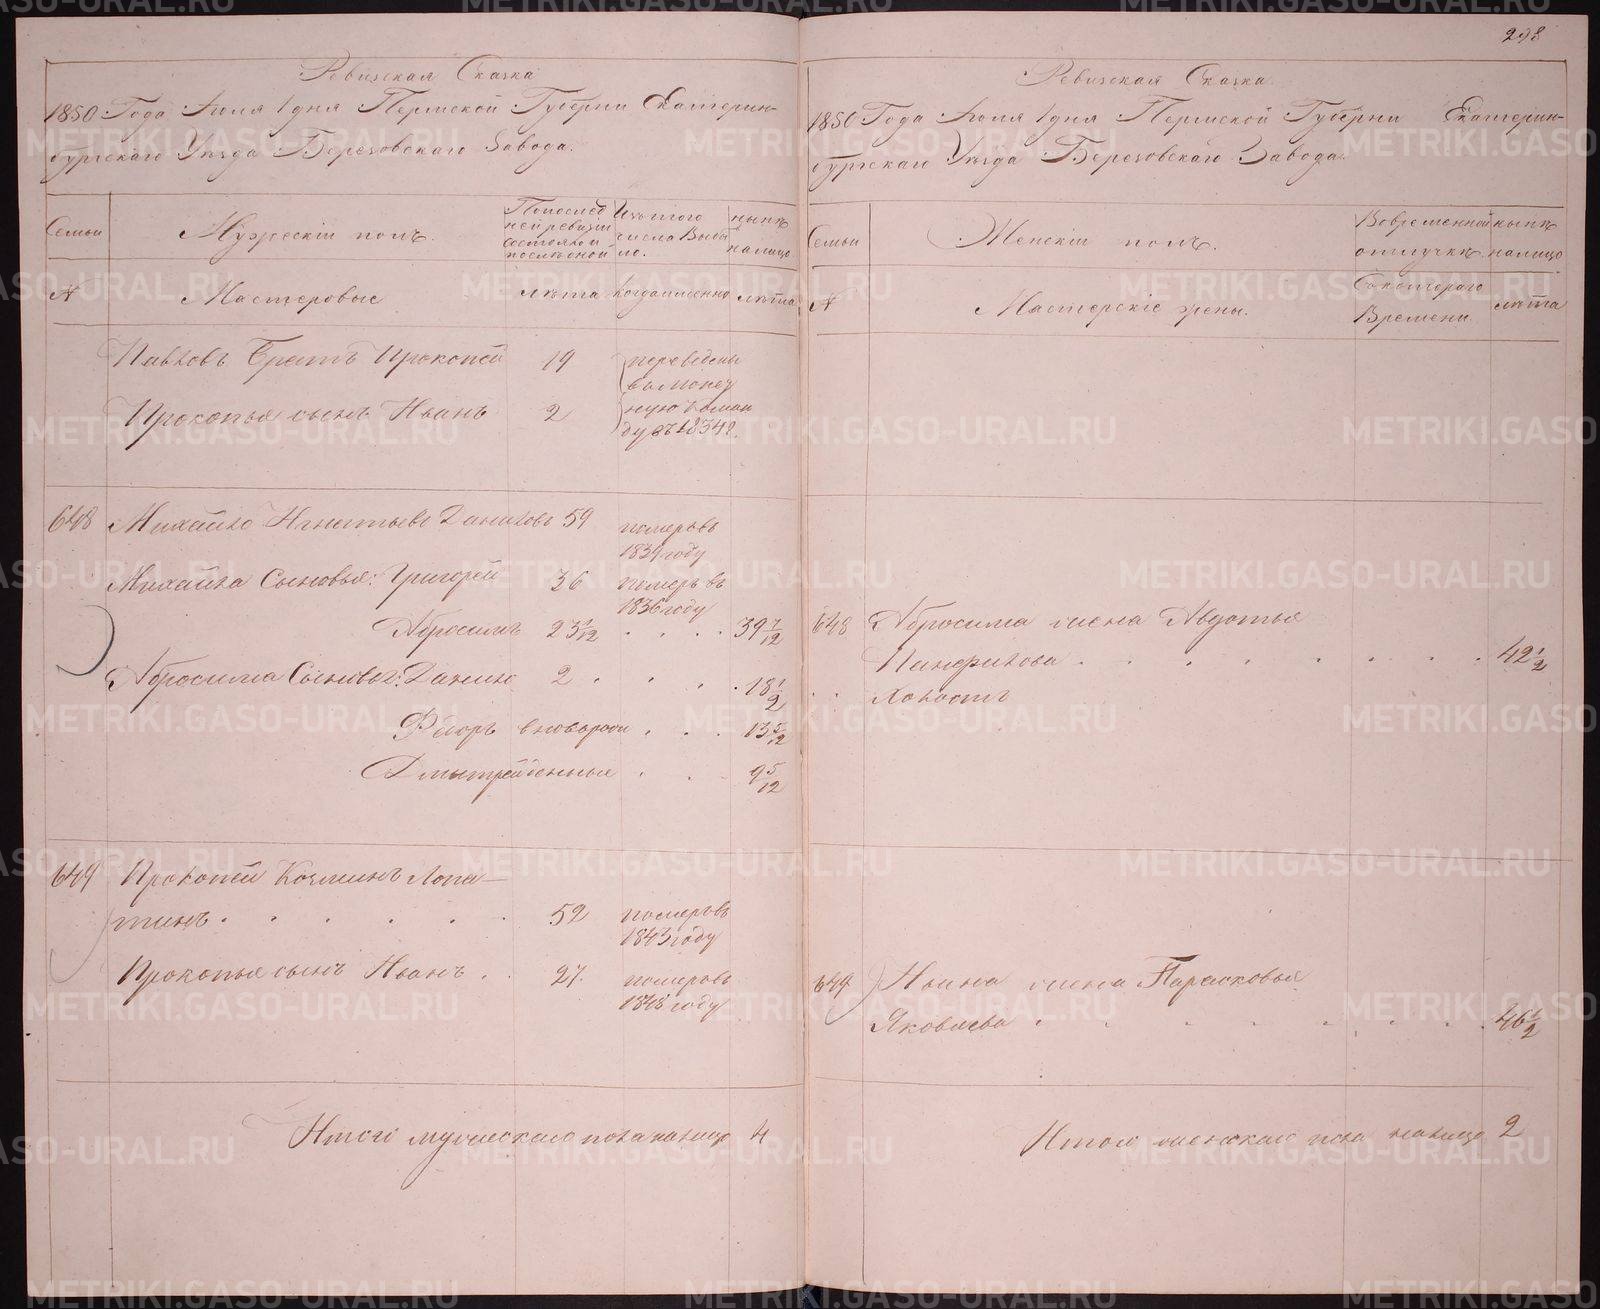 298
Ревизская Сказка
1850 Года Июля 1 дня Пермской Губернии Екатерин-
бургскаго Уѣзда Березовскаго Завода.
Семьи
Мужескій полъ.
По послед
ней ревизіи
состояло и
послѣ оной
Изъ того
числа Выбы
ло.
нынѣ
на лицо
№
Мастеровые
лѣта
Когда именно
лѣта
Павловъ Братъ Прокопей 19
Прокопья сынъ Иванъ 2
переведены
в монет
ную Коман
ду въ 1834 г.
648 Михайло Игнатьевъ Даниловъ 59 померъ въ
1839 году
Михайла Сыновья: Григорей 36 померъ въ
1836 году
Абросимъ 23 7/12 . . . 39 7/12
Абросима Сыновья: Данило 2 . . . 18 1/2
Федоръ вновьрожд . . . 13 5/12
Дмитрей денные . . 9 5/12
649 Прокопей Козминъ Лопа-
тинъ . . . . . . 52 померъ въ
1843 году
Прокопья сынъ Иванъ . . 27. померъ въ
1848 году
Итого мужескаго пола на лицо 4
Ревизская Сказка.
1850 Года Июля 1 дня Пермской Губерни Екатерин-
бургскаго Уѣзда Березовскаго Завода.
Семьи
Женскій полъ.
Во временной
отлучкѣ
нынѣ
на лицо
№
Мастерскіе жены.
Съ котораго
Времени.
лѣта
648 Абросима жена Авдотья
Панфилова . . . . . . . . 42 1/2
649 Ивана жена Парасковья
Яковлева . . . . . . . . 46 1/2
Итого женскаго пола на лицо 2
METRIKI.GASO-URAL.RU